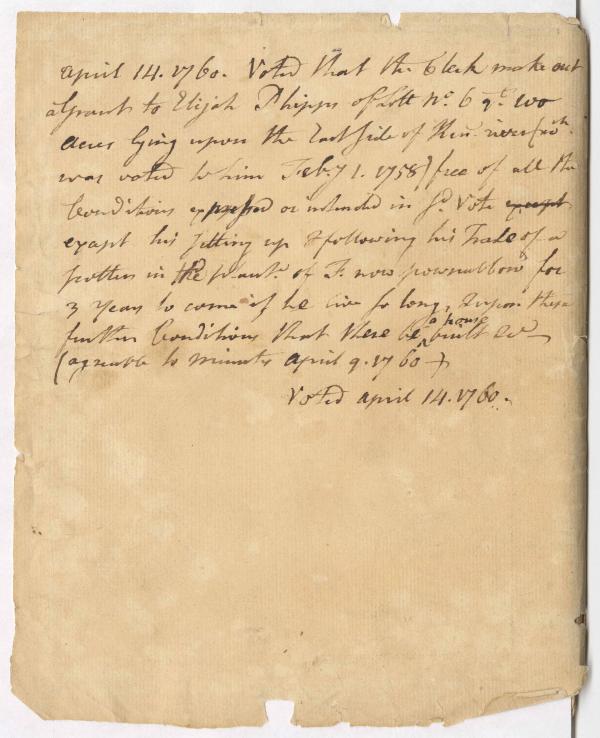 April 14. 1760. Voted that the Clerk make out
a Grant to Elijah Phipps of Lott No. 6 qt. 100
acres lying upon the East side of Ken. river (wch.
was voted to him Feb.y 1. 1758) free of all the
Conditions expressed or intended in sd. Vote except
exept his setting up & following his Trade of a
potter in the plantn. of F. now pownalboro for
3 Years to come if he live so long, & upon these
further Conditions that there be a house built &c
(agreable to minutes April 9. 1760)
Voted april 14. 1760.